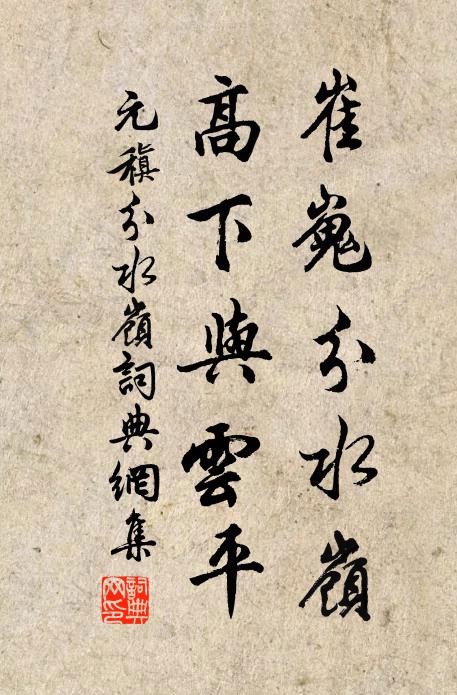 崔嵬分水嶺
高下與雲平
元稹分水嶺詞典網集
詞典
网印